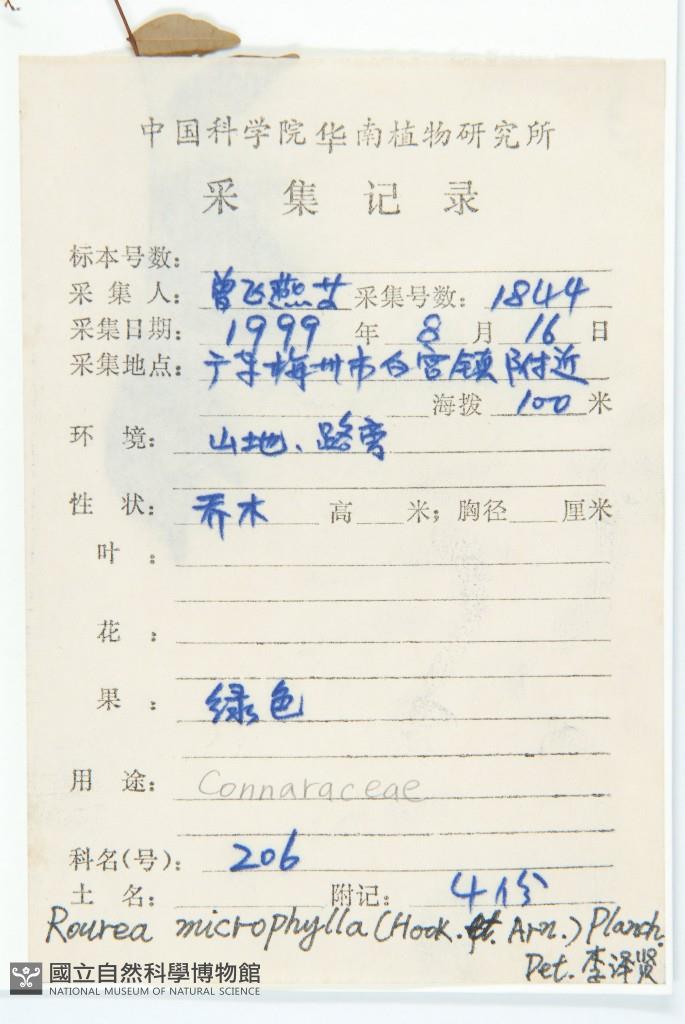 中国科学院华南植物研究所
采集记录
标本号数：
采集人：曾飞燕 采集号数：1844
采集日期：1999年8月16日
采集地点：广东梅州市白宫镇附近
海拨 100 米
环境：山地、路旁
性状：乔木 高 米；胸径 厘米
叶：
花：
果：绿色
用途：Connaraceae
科名(号)：206
土名： 附记：4份
Rourea microphylla (Hook. et. Arn.) Planch.
Det. 李泽贤
國立自然科學博物館
NATIONAL MUSEUM OF NATURAL SCIENCE